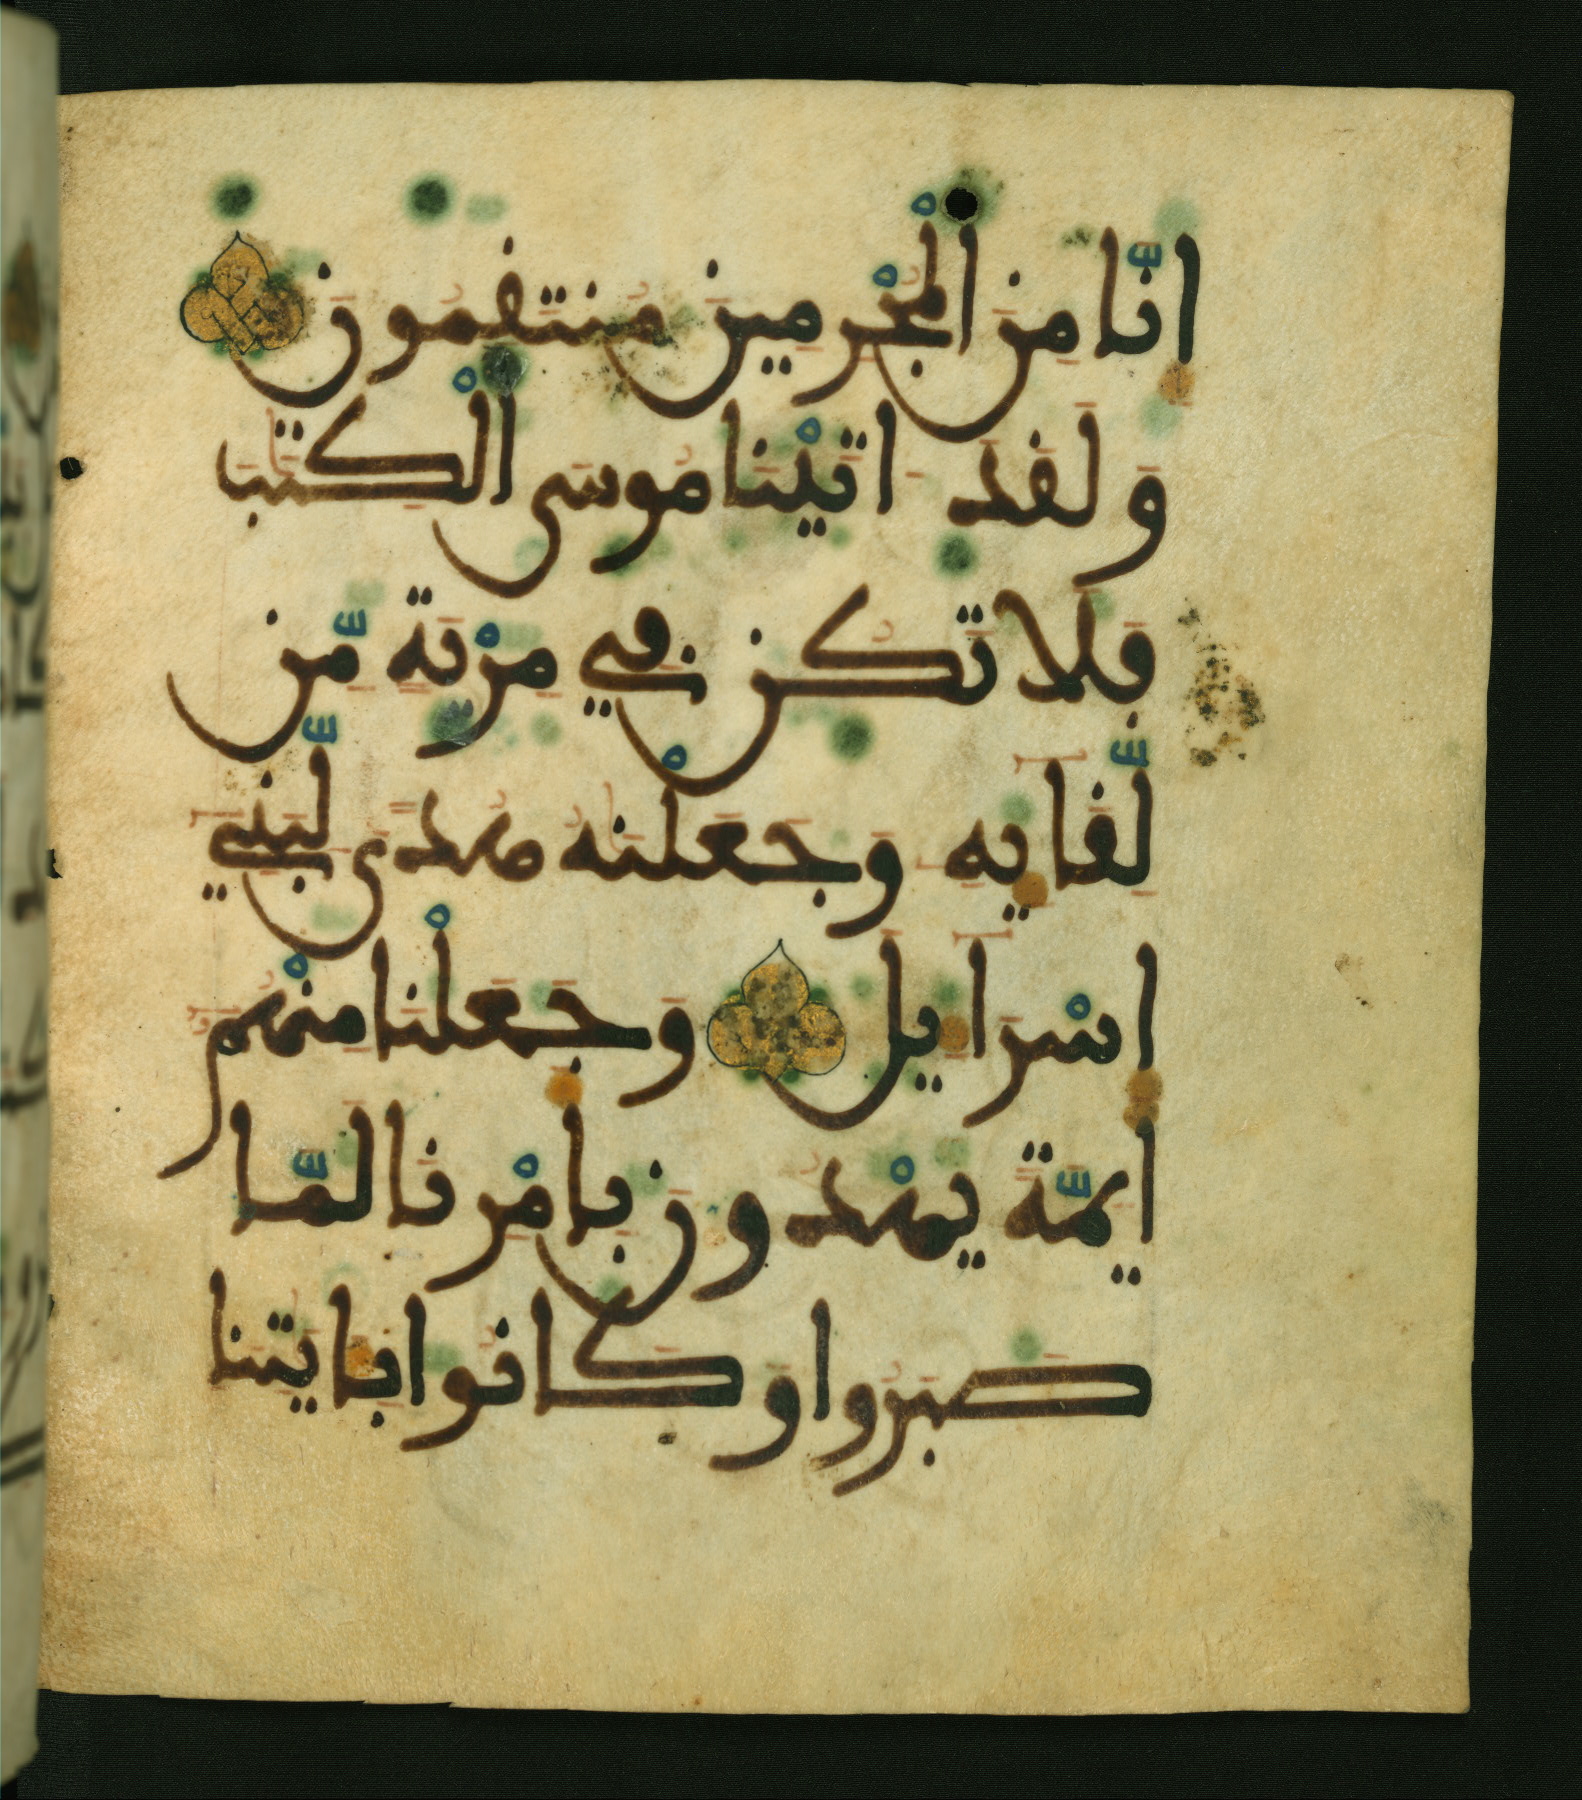 إنّا مِنَ الْمُجْرِمِينَ مُنتَقِمُونَ
وَلَقَدَ اتَيْنَا مُوسَى الْكِتَٰبَ
فَلَا تَكُن فِي مِرْيَةٍ مِّن
لِّقَآيِهِ وَجَعَلْنَٰهُ هُدًى لِّبَنِيٓ
إِسْرَآيِلَ وَجَعَلْنَا مِنْهُمُ
أَيِمَّةً يَهْدُونَ بِأَمْرِنَا لَمَّا
صَبَرُوا وَكَانُوا بِـَٔايَٰتِنَا